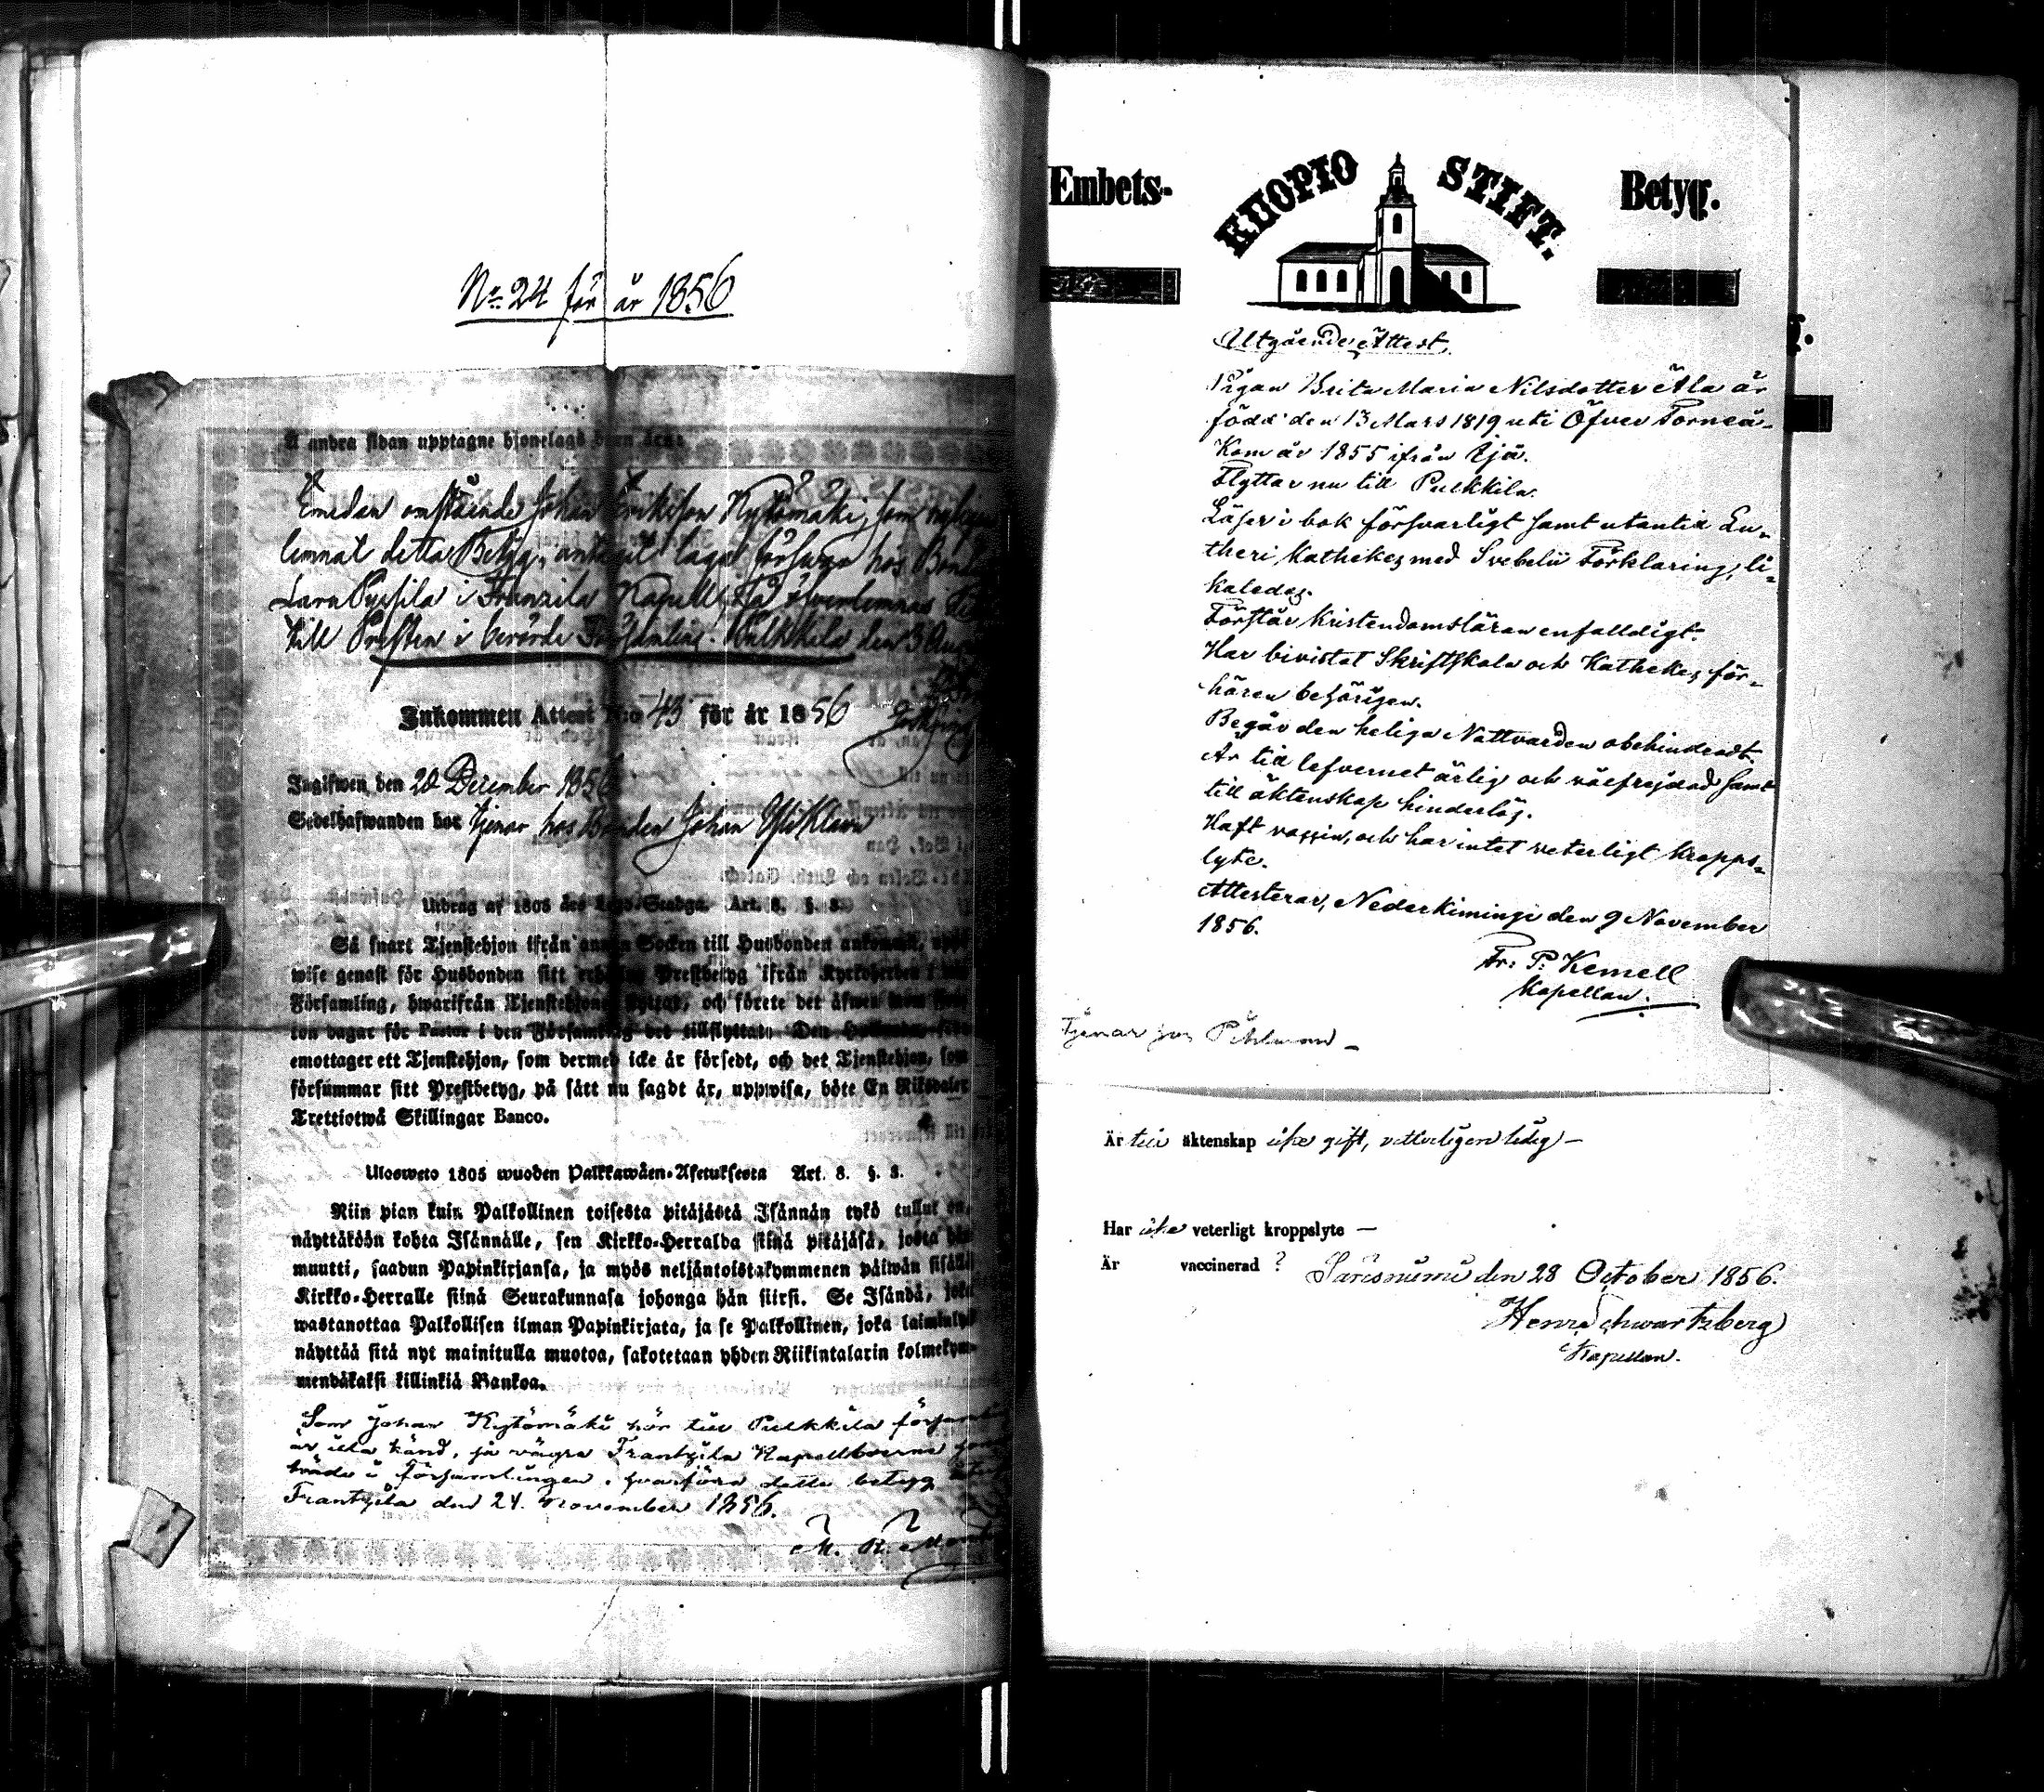 No 24 för år 1856
Å andra sidan upptagne hjonelags barn äro:
Emedan omstående Johan Eriksson Kytömäki, som
lemnat detta Betyg, antagit laga försvar hos
Lars Pyrsila i Frantzila Kapell, så
till Presten i berörde Församling. Pulkkila den 3 Aug
Inkommen Attest N:o 43 för år 1856
Ingifwen den 28 December 1856
Sedelhafwanden bor tjenar hos Bonden Johan
Utdrag af 1805 års Lego-Stadga. Art. 8. §. 3.
Så snart Tjenstehjon ifrån annan Socken till Husbonden ankommit, upp-
wise genast för Husbonden sitt Prestbetyg ifrån Kyrkoherden i
Församling, hwarifrån Tjenstehjonet flyttat, och förete det äfwen inom
ton dagar för Pastor i den Församling det tillflyttat. Den
emottager ett Tjenstehjon, som dermed icke är försedt, och det Tjenstehjon, som
försummar sitt Prestbetyg, på sätt nu sagdt är, uppwisa, böte En Riksdaler
Trettiotwå Skillingar Banco.
Ulosweto 1805 wuoden Palkkawäen-Asetuksesta Art. 8. §. 3.
Niin pian kuin Palkollinen toisesta pitäjästä Isännän tykö tullut on,
näyttäköön kohta Isännälle, sen Kirkko-Herralda siinä pitäjäsä, josta hän
muutti, saadun Papinkirjansa, ja myös neljäntoistakymmenen päiwän sisällä
Kirkko-Herralle siinä Seurakunnasa johonga hän siirsi. Se Isändä, joka
wastanottaa Palkollisen ilman Papinkirjata, ja se Palkollinen, joka laiminlyö
näyttää sitä nyt mainitulla muotoa, sakotetaan yhden Riikintalarin kolmekym-
mendäkaksi killinkiä Bankoa.
Som Johan Kytömäki hör till Pulkkila
är illa känd, så vägra Frantzila Kapellboerne
träde i församlingen, hvarföre detta betyg
Frantzila den 24. November 1856.
Embets-
KUOPIO STIFT.
Betyg.
Utgående Attest.
Pigan Brita Maria Nilsdotter Ala är
född den 13 Mars 1819 uti Öfver Torneå.
Kom år 1855 ifrån Ijo.
Flyttar nu till Pulkkila.
Läser i bok försvarligt samt utantill Lu-
theri kathekes med Svebelii Förklaring, li-
kaledes.
Förstår Kristendomsläran enfalldigt.
Har bivistat Skriftskola och Kathekes för-
hören behörigen.
Begår den heliga Nattvarden obehindradt.
Är till lefvernet ärlig och välfrejdad samt
till äktenskap hinderlös.
Haft vaccin, och har intet veterligt kropps-
lyte.
Attesterar, Nederkiminge den 9 November
1856.
Fr: P: Kemell
Kapellan.
tjenar hos Pihlman –
Är till äktenskap icke gift, vetterligen ledig –
Har icke veterligt kroppslyte —
Är vaccinerad ? Säresniemi den 28 October 1856.
Henr Schwartzberg
Kapellan.